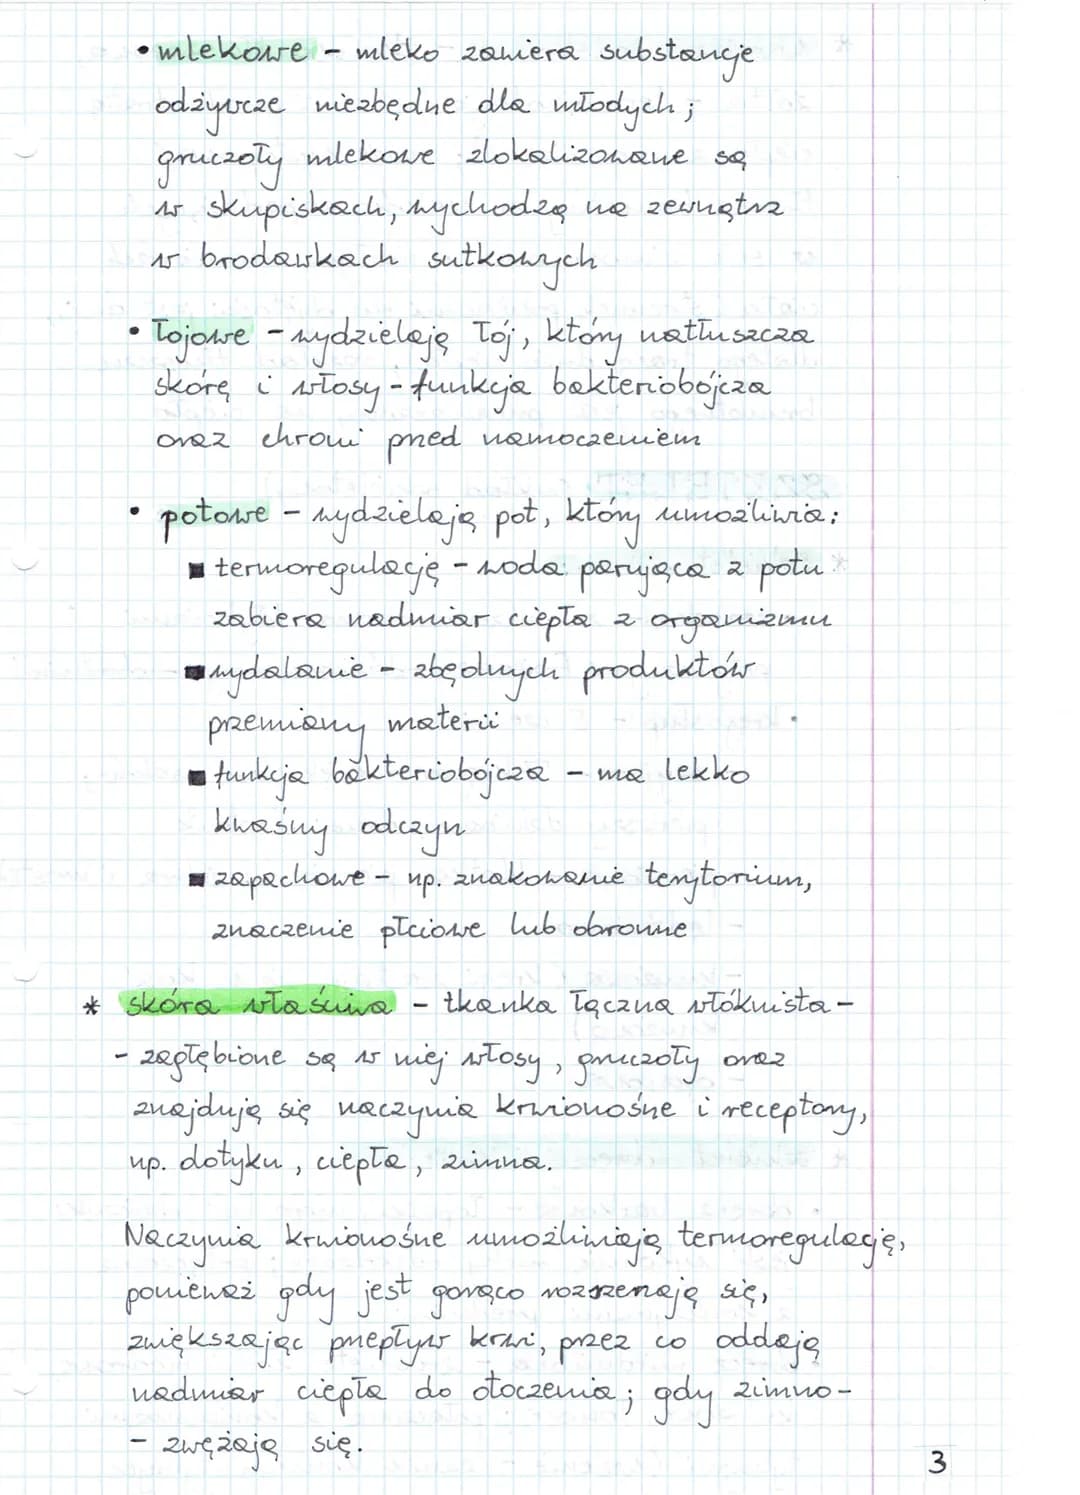 • mlekowe - mleko zawiera substancje
odżywcze niezbędne dla młodych;
gruczoły mlekowe zlokalizowane są
w skupiskach, wychodzą na zewnątrz
w brodawkach sutkowych
• łojowe - wydzielają łój, który natłuszcza
skórę i włosy - funkcja bakteriobójcza
oraz chroni przed namoczeniem
• potowe - wydzielają pot, który umożliwia:
▪ termoregulację - woda parująca z potu
zabiera nadmiar ciepła z organizmu
▪ wydalanie - zbędnych produktów
przemiany materii
▪ funkcja bakteriobójcza - ma lekko
kwaśny odczyn
▪ zapachowe - np. znakowanie terytorium,
znaczenie płciowe lub obronne
* skóra właściwa - tkanka łączna włóknista -
- zagłębione są w niej włosy, gruczoły oraz
znajdują się naczynia krwionośne i receptory,
np. dotyku, ciepła, zimna.
Naczynia krwionośne umożliwiają termoregulację,
ponieważ gdy jest gorąco rozszerzają się,
zwiększając przepływ krwi, przez co oddają
nadmiar ciepła do otoczenia; gdy zimno -
- zwężają się.
3